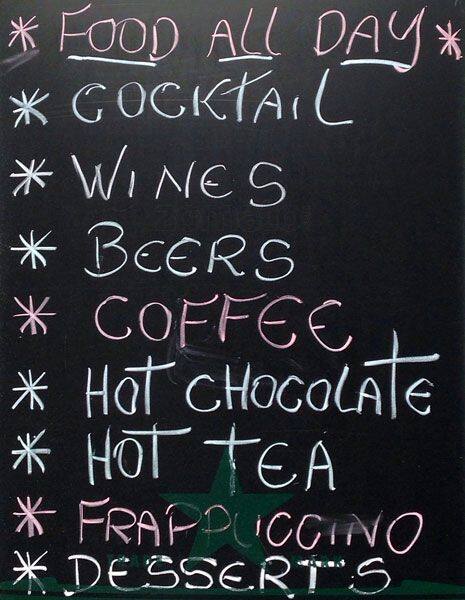 * FOOD ALL DAY *
* COCKTAIL
* WINES
* BEERS
* COFFEE
* HOT CHOCOLATE
* HOT TEA
* FRAPPUCCINO
* DESSERTS